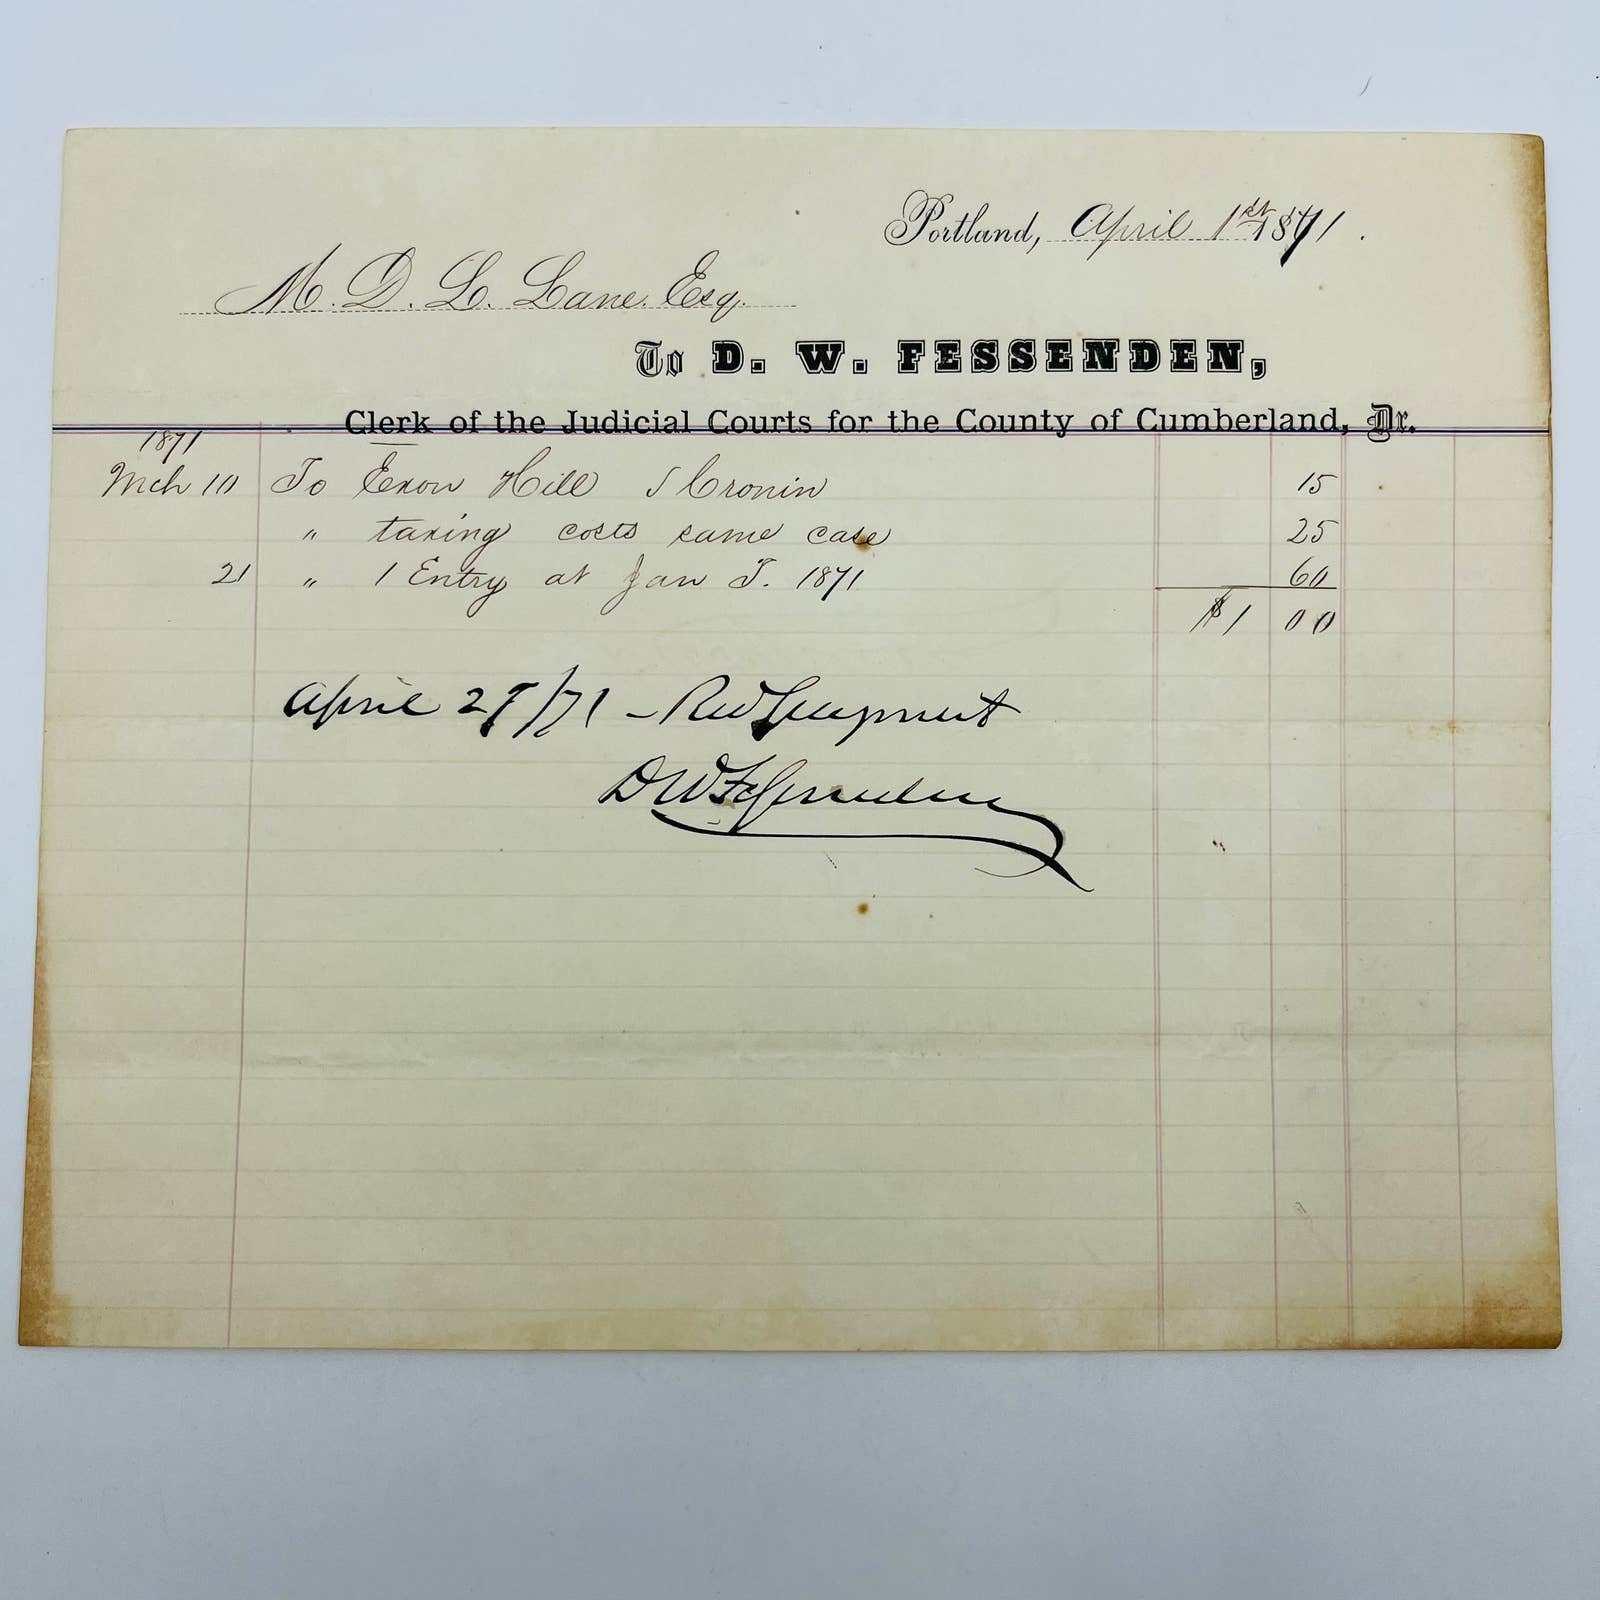 Portland, April 1st 1871.
M. D. L. Lane. Esq.
To D. W. FESSENDEN,
Clerk of the Judicial Courts for the County of Cumberland, Dr.
1871
Mch 10 To Exon Hill v Cronin 15
" taxing costs same case 25
21 " 1 Entry at Jan T. 1871 60
$1 00
April 27/71 - Recd payment
D W Fessenden